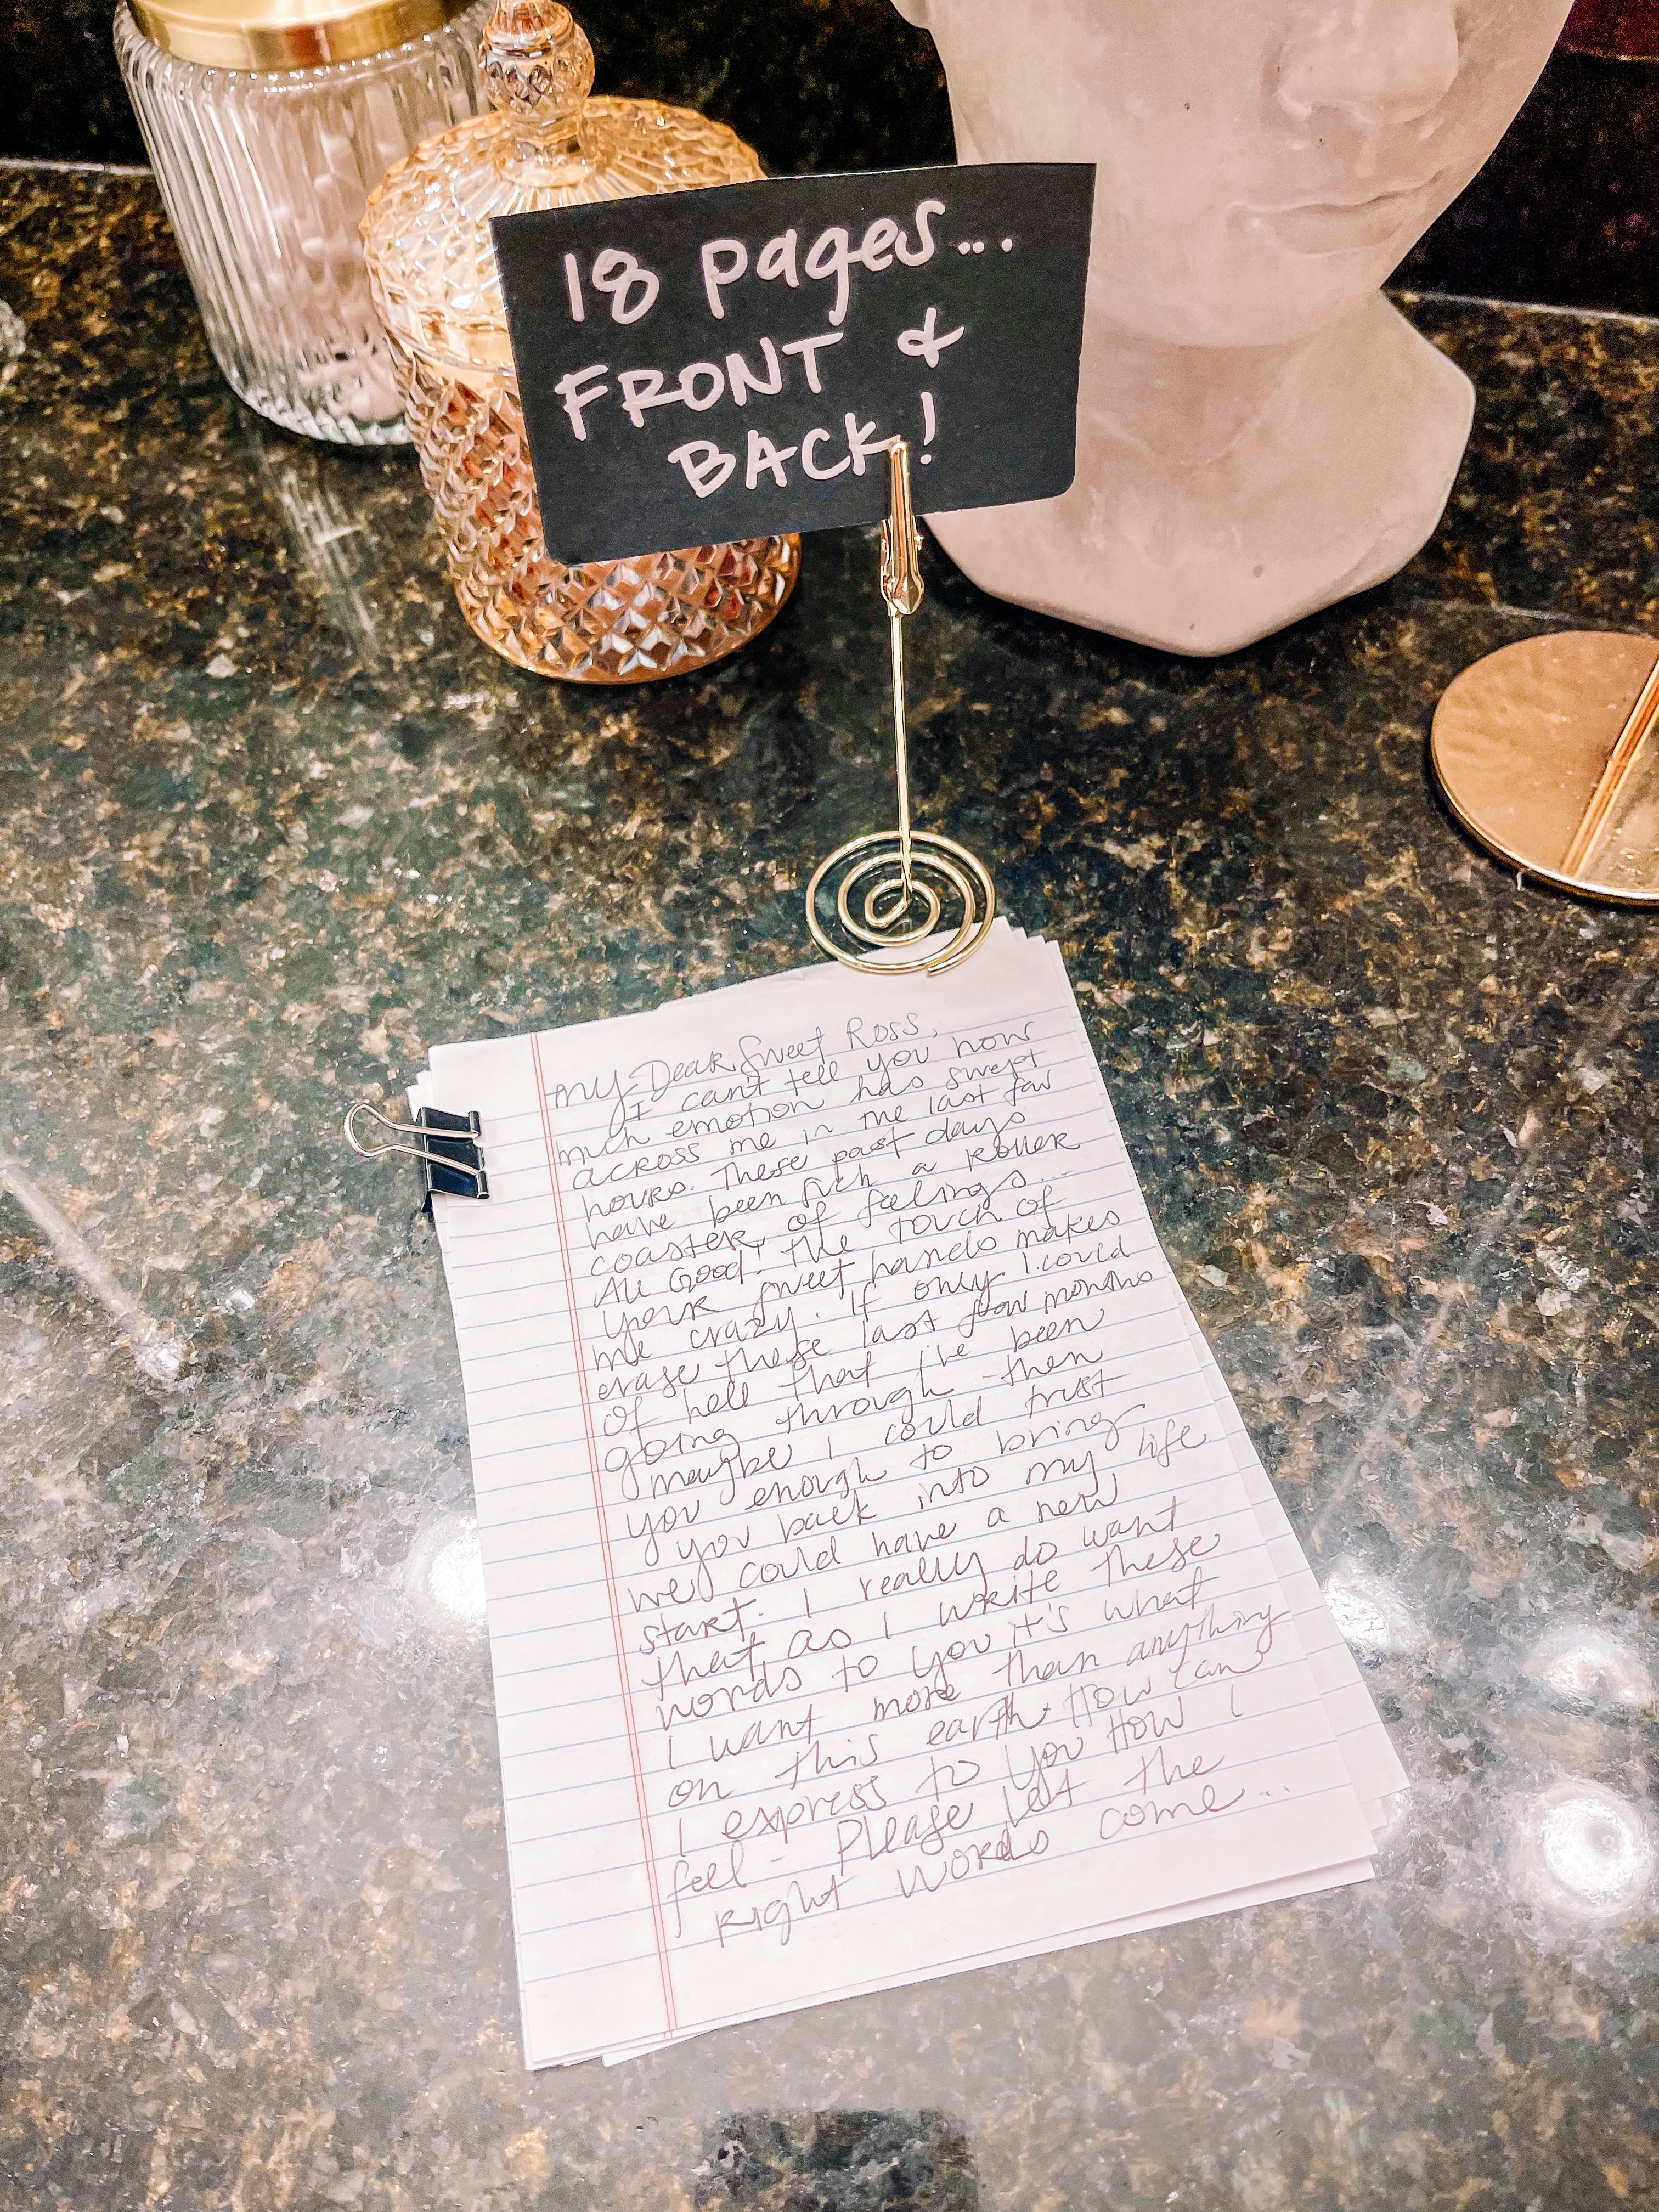 18 pages...
FRONT &
BACK!
My Dear Sweet Ross,
I can't tell you how
much emotion has swept
across me in the last few
hours. These past days
have been such a roller
coaster, of feelings...
All Good! The touch of
your sweet hands makes
me crazy. If only I could
erase these last few months
of hell that I've been
going through - then
maybe I could trust
you enough to bring
you back into my life
we could have a new
start. I really do want
that, as I write these
words to you it's what
I want more than anything
on this earth. How can
I express to you How I
feel - Please let the
right words come...